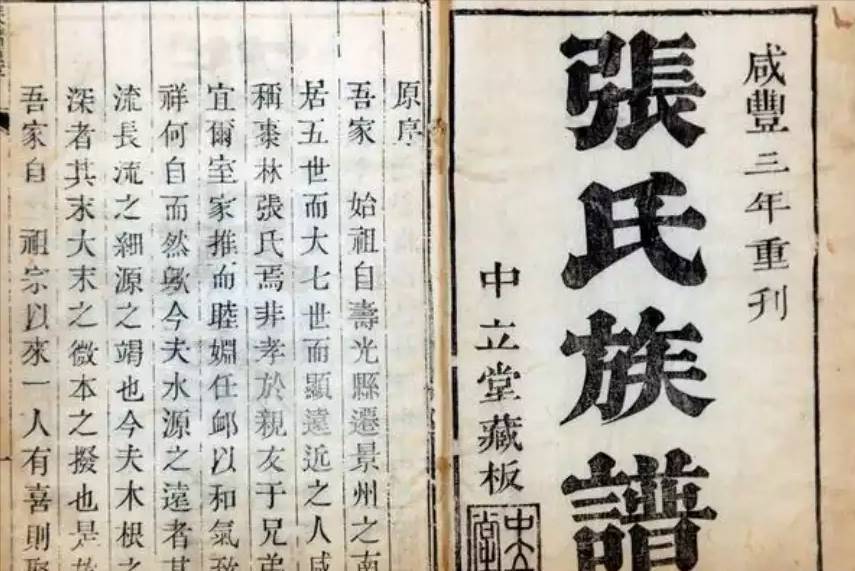 咸豐三年重刊
張氏族譜
中立堂藏板
中立堂
原序
吾家 始祖自壽光縣遷景州之南
居五世而大七世而顯遠近之人咸
稱棗林張氏焉非孝於親友于兄弟
宜爾室家推而睦婣任卹以和氣致
祥何自而然歟今夫水源之遠者其
流長流之細源之竭也今夫木根之
深者其末大末之微本之撥也是故
吾家自 祖宗以來一人有喜則聚